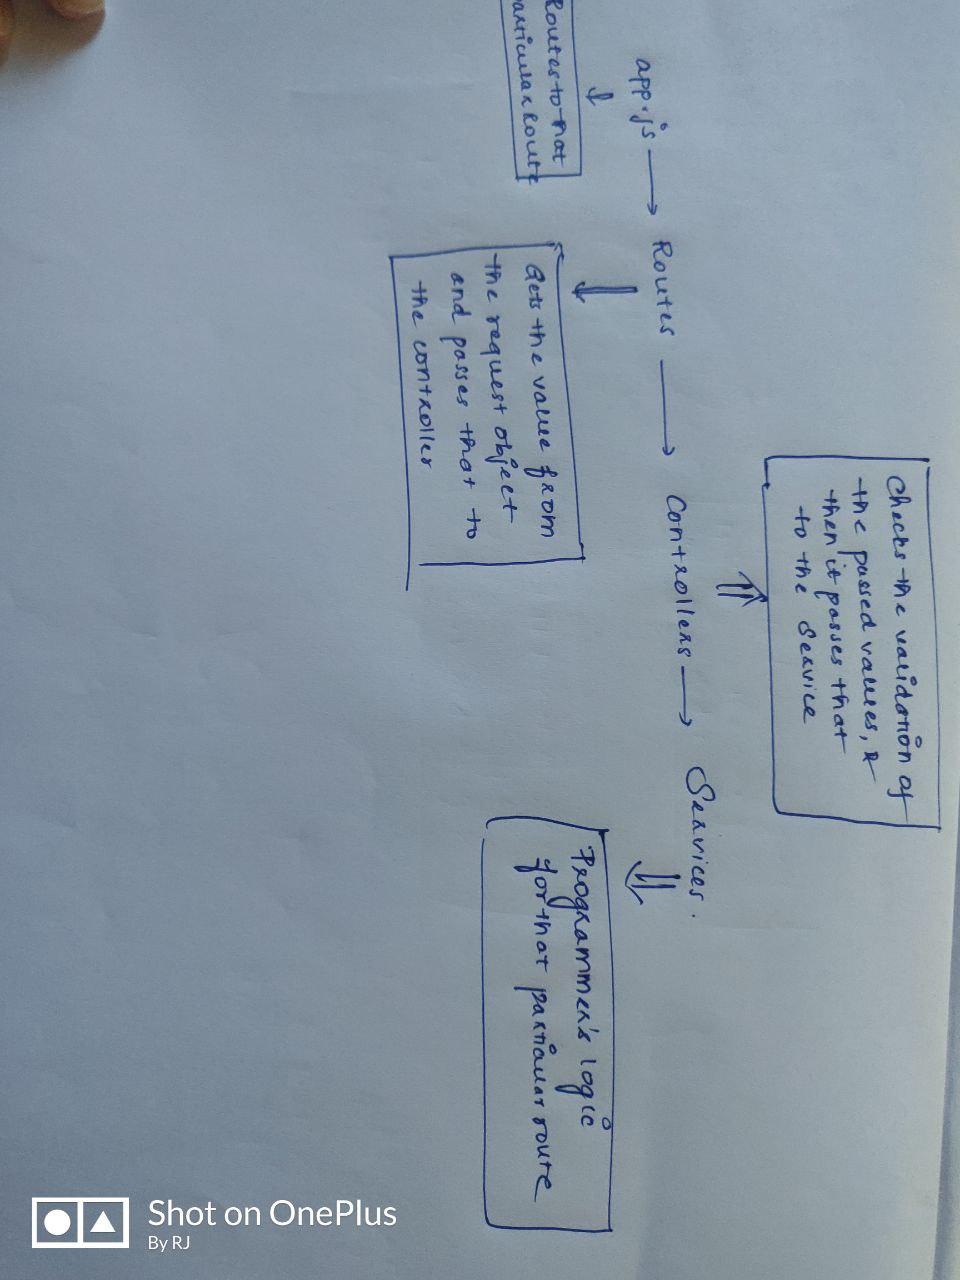 Checks the validation of
the passed values, &
then it passes that
to the Service
app.js → Routes → Controllers → Services.
Routes to that
particular Route
Gets the value from
the request object
and passes that to
the controller
Programmer's logic
for that particular route
Shot on OnePlus
By RJ